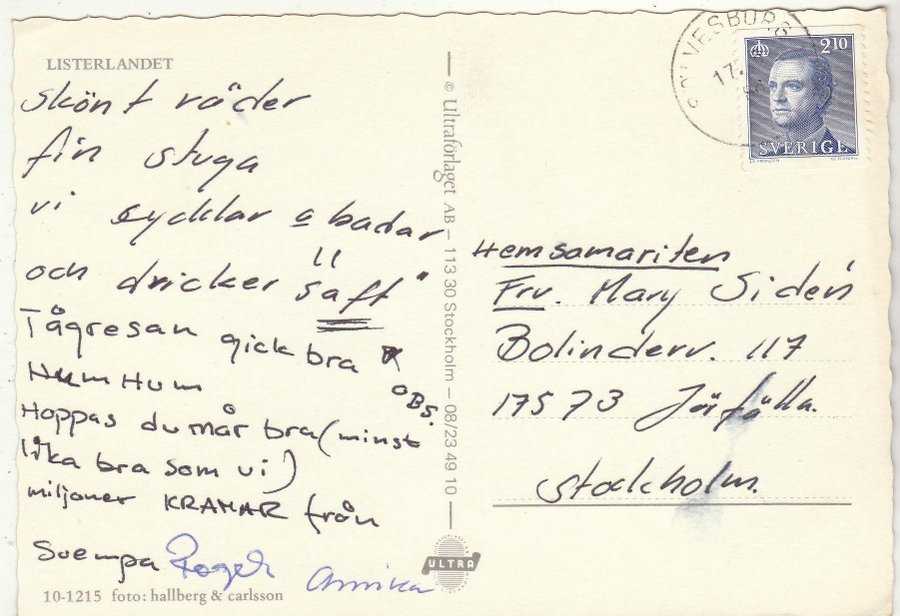 LISTERLANDET
skönt väder
fin stuga
vi cycklar o badar
och dricker "saft"
Tågresan gick bra
OBS.
HumHum
Hoppas du mår bra (minst
lika bra som vi)
miljoner KRAMAR från
Svempa Roger Annika
10-1215 foto: hallberg & carlsson
© Ultraförlaget AB – 113 30 Stockholm – 08/23 49 10
ULTRA
SÖLVESBORG
17.
210
SVERIGE
Hemsamariten
Fru. Mary Sidén
Bolinderv. 117
175 73 Järfälla.
Stockholm.